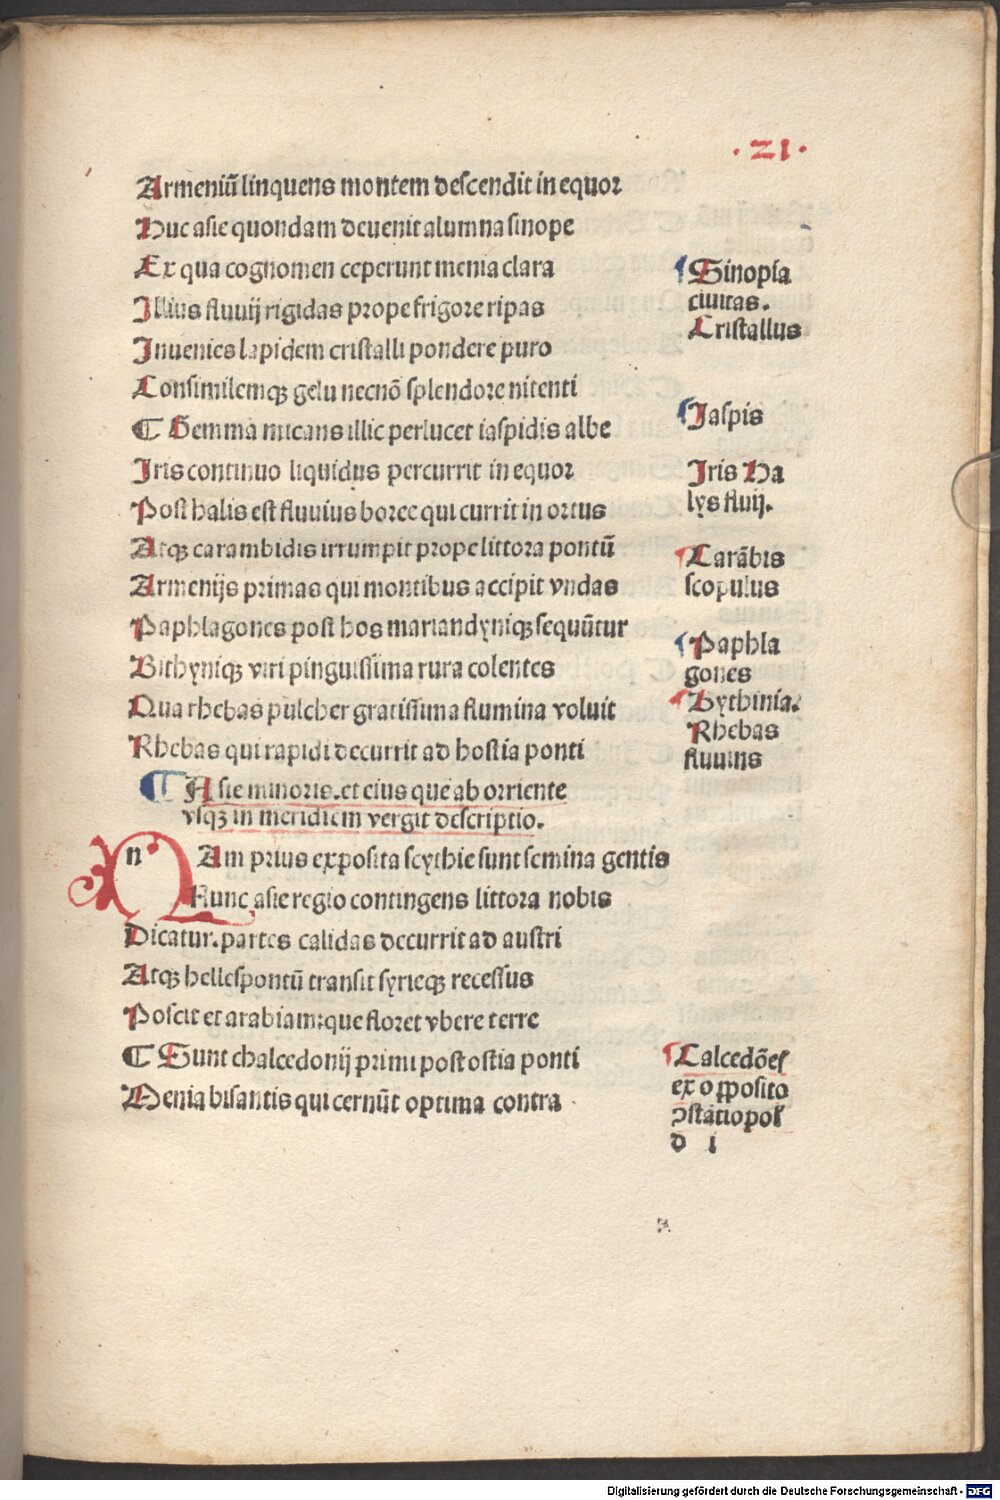 ·21·
Armeniũ linquens montem descendit in equor
Huc asie quondam deuenit alumna sinope
Ex qua cognomen ceperunt menia clara
Illius fluuij rigidas prope frigore ripas
Inuenies lapidem cristalli pondere puro
Consimilemq₃ gelu necnõ splendore nitenti
¶ Gemma micans illic perlucet iaspidis albe
Iris continuo liquidus percurrit in equor
Post halis est fluuius boree qui currit in ortus
Atq₃ carambidis irrumpit prope littora pontũ
Armenijs primas qui montibus accipit vndas
Paphlagones post hos mariandyniq₃ sequũtur
Bithyniq₃ viri pinguissima rura colentes
Qua rhebas pulcher gratissima flumina voluit
Rhebas qui rapidi decurrit ad hostia ponti
¶ Asie minoris. et eius que ab orriente
vsq₃ in meridiem vergit descriptio.
n Am prius exposita scythie sunt semina gentis
Nunc asie regio contingens littora nobis
Dicatur. partes calidas decurrit ad austri
Atq₃ hellespontũ transit syrieq₃ recessus
Poscit et arabiam: que floret vbere terre
¶ Sunt chalcedonij primi post ostia ponti
Menia bisantis qui cernũt optima contra
¶ Sinopia
ciuitas.
Cristallus
¶ Iaspis
Iris Ha
lys fluij.
¶ Carãbis
scopulus
¶ Paphla
gones
¶ Bythinia.
Rhebas
fluuius
¶ Calcedões
ex opposito
ↄstãtiopol
d i
Digitalisierung gefördert durch die Deutsche Forschungsgemeinschaft - DFG